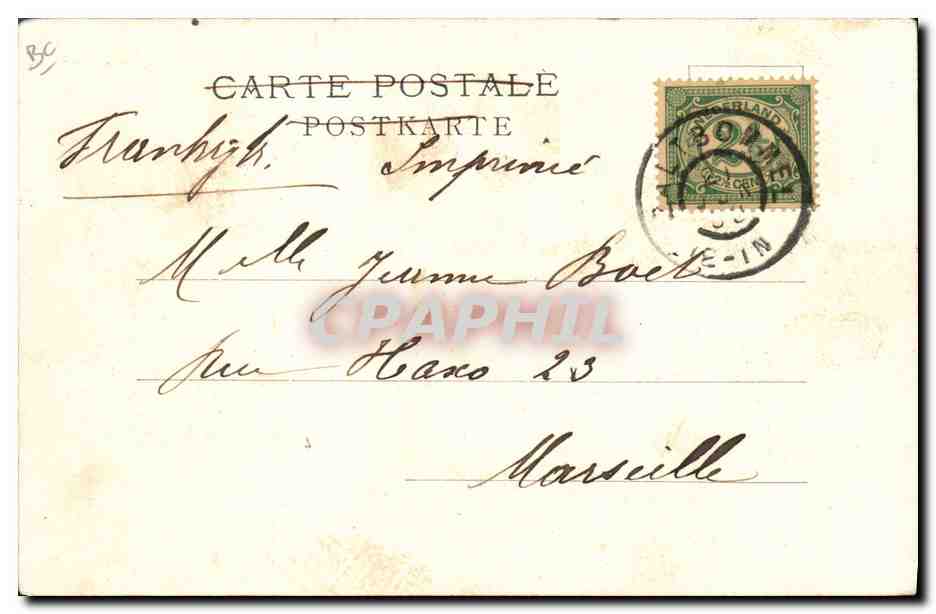 BC
CARTE POSTALE
POSTKARTE
Frankryk. Imprimé
NEDERLAND
2½
2½ CENT
ZALTBOMMEL
8-9N
Melle Jeanne Boet
rue Haxo 23
Marseille
CPAPHIL